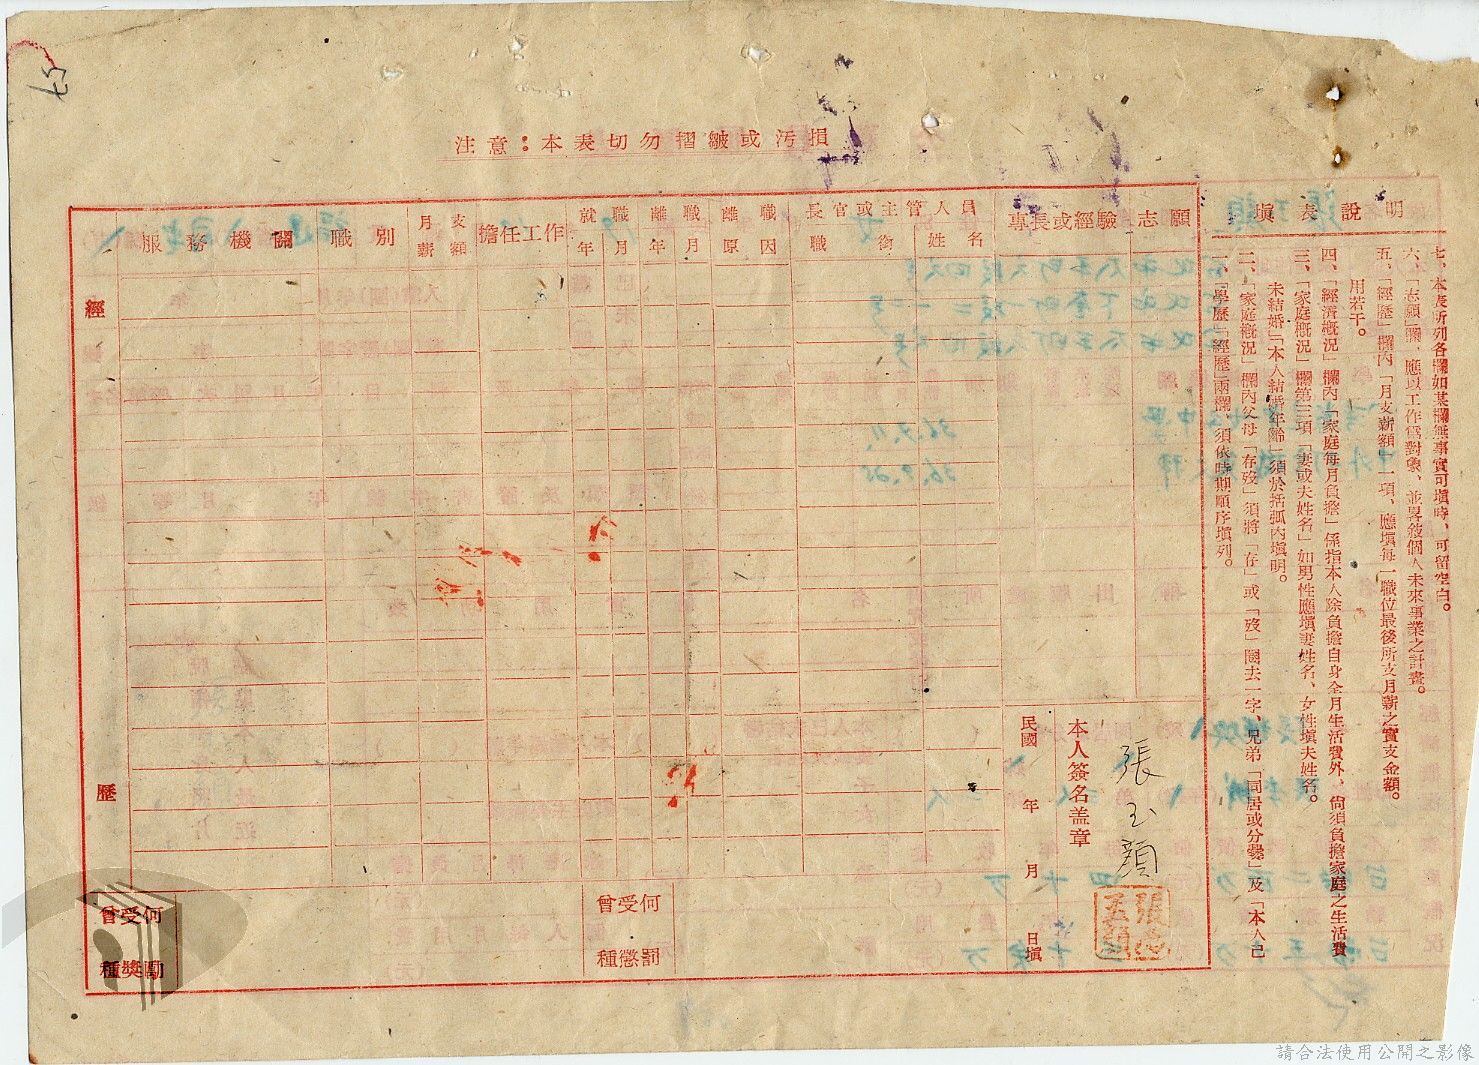 注意：本表切勿摺皺或汚損
填表說明
一、「學歷」「經歷」兩欄，須依時期順序填列。
二、「家庭概況」欄內父母「存歿」須將「存」或「歿」圈去一字、兄弟「同居或分爨」及「本人已
未結婚」「本人結婚年齡」須於括弧內填明。
三、「家庭概況」欄第三項「妻或夫姓名」如男性應填妻姓名、女性填夫姓名。
四、「經濟概況」欄內「家庭每月負擔」係指本人除負擔自身全月生活費外、尙須負擔家庭之生活費
用若干。
五、「經歷」欄內「月支薪額」一項、應填每一職位最後所支月薪之實支金額。
六、「志願」欄、應以工作爲對象、並畧敍個人未來事業之計畫。
七、本表所列各欄如某欄無事實可填時、可留空白。
經歷
服務機關
職別
月支薪額
擔任工作
就職年月
離職年月
離職原因
長官或主管人員
職銜
姓名
專長或經驗
志願
本人簽名盖章
張玉顏
民國 年 月 日填
曾受何種獎勵
曾受何種懲罰
請合法使用公開之影像